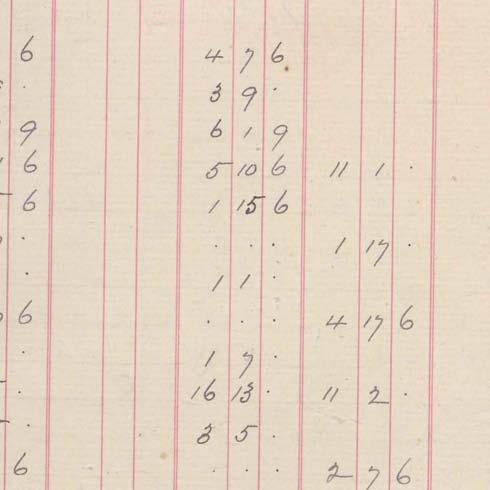 6 4 7 6
· 3 9 ·
9 6 1 9
6 5 10 6 11 1 ·
6 1 15 6
· · · · 1 17 ·
· 1 1 ·
6 · · · 4 17 6
· 1 7 ·
· 16 13 · 11 2 ·
· · 3 5 ·
6 · · · · 2 7 6